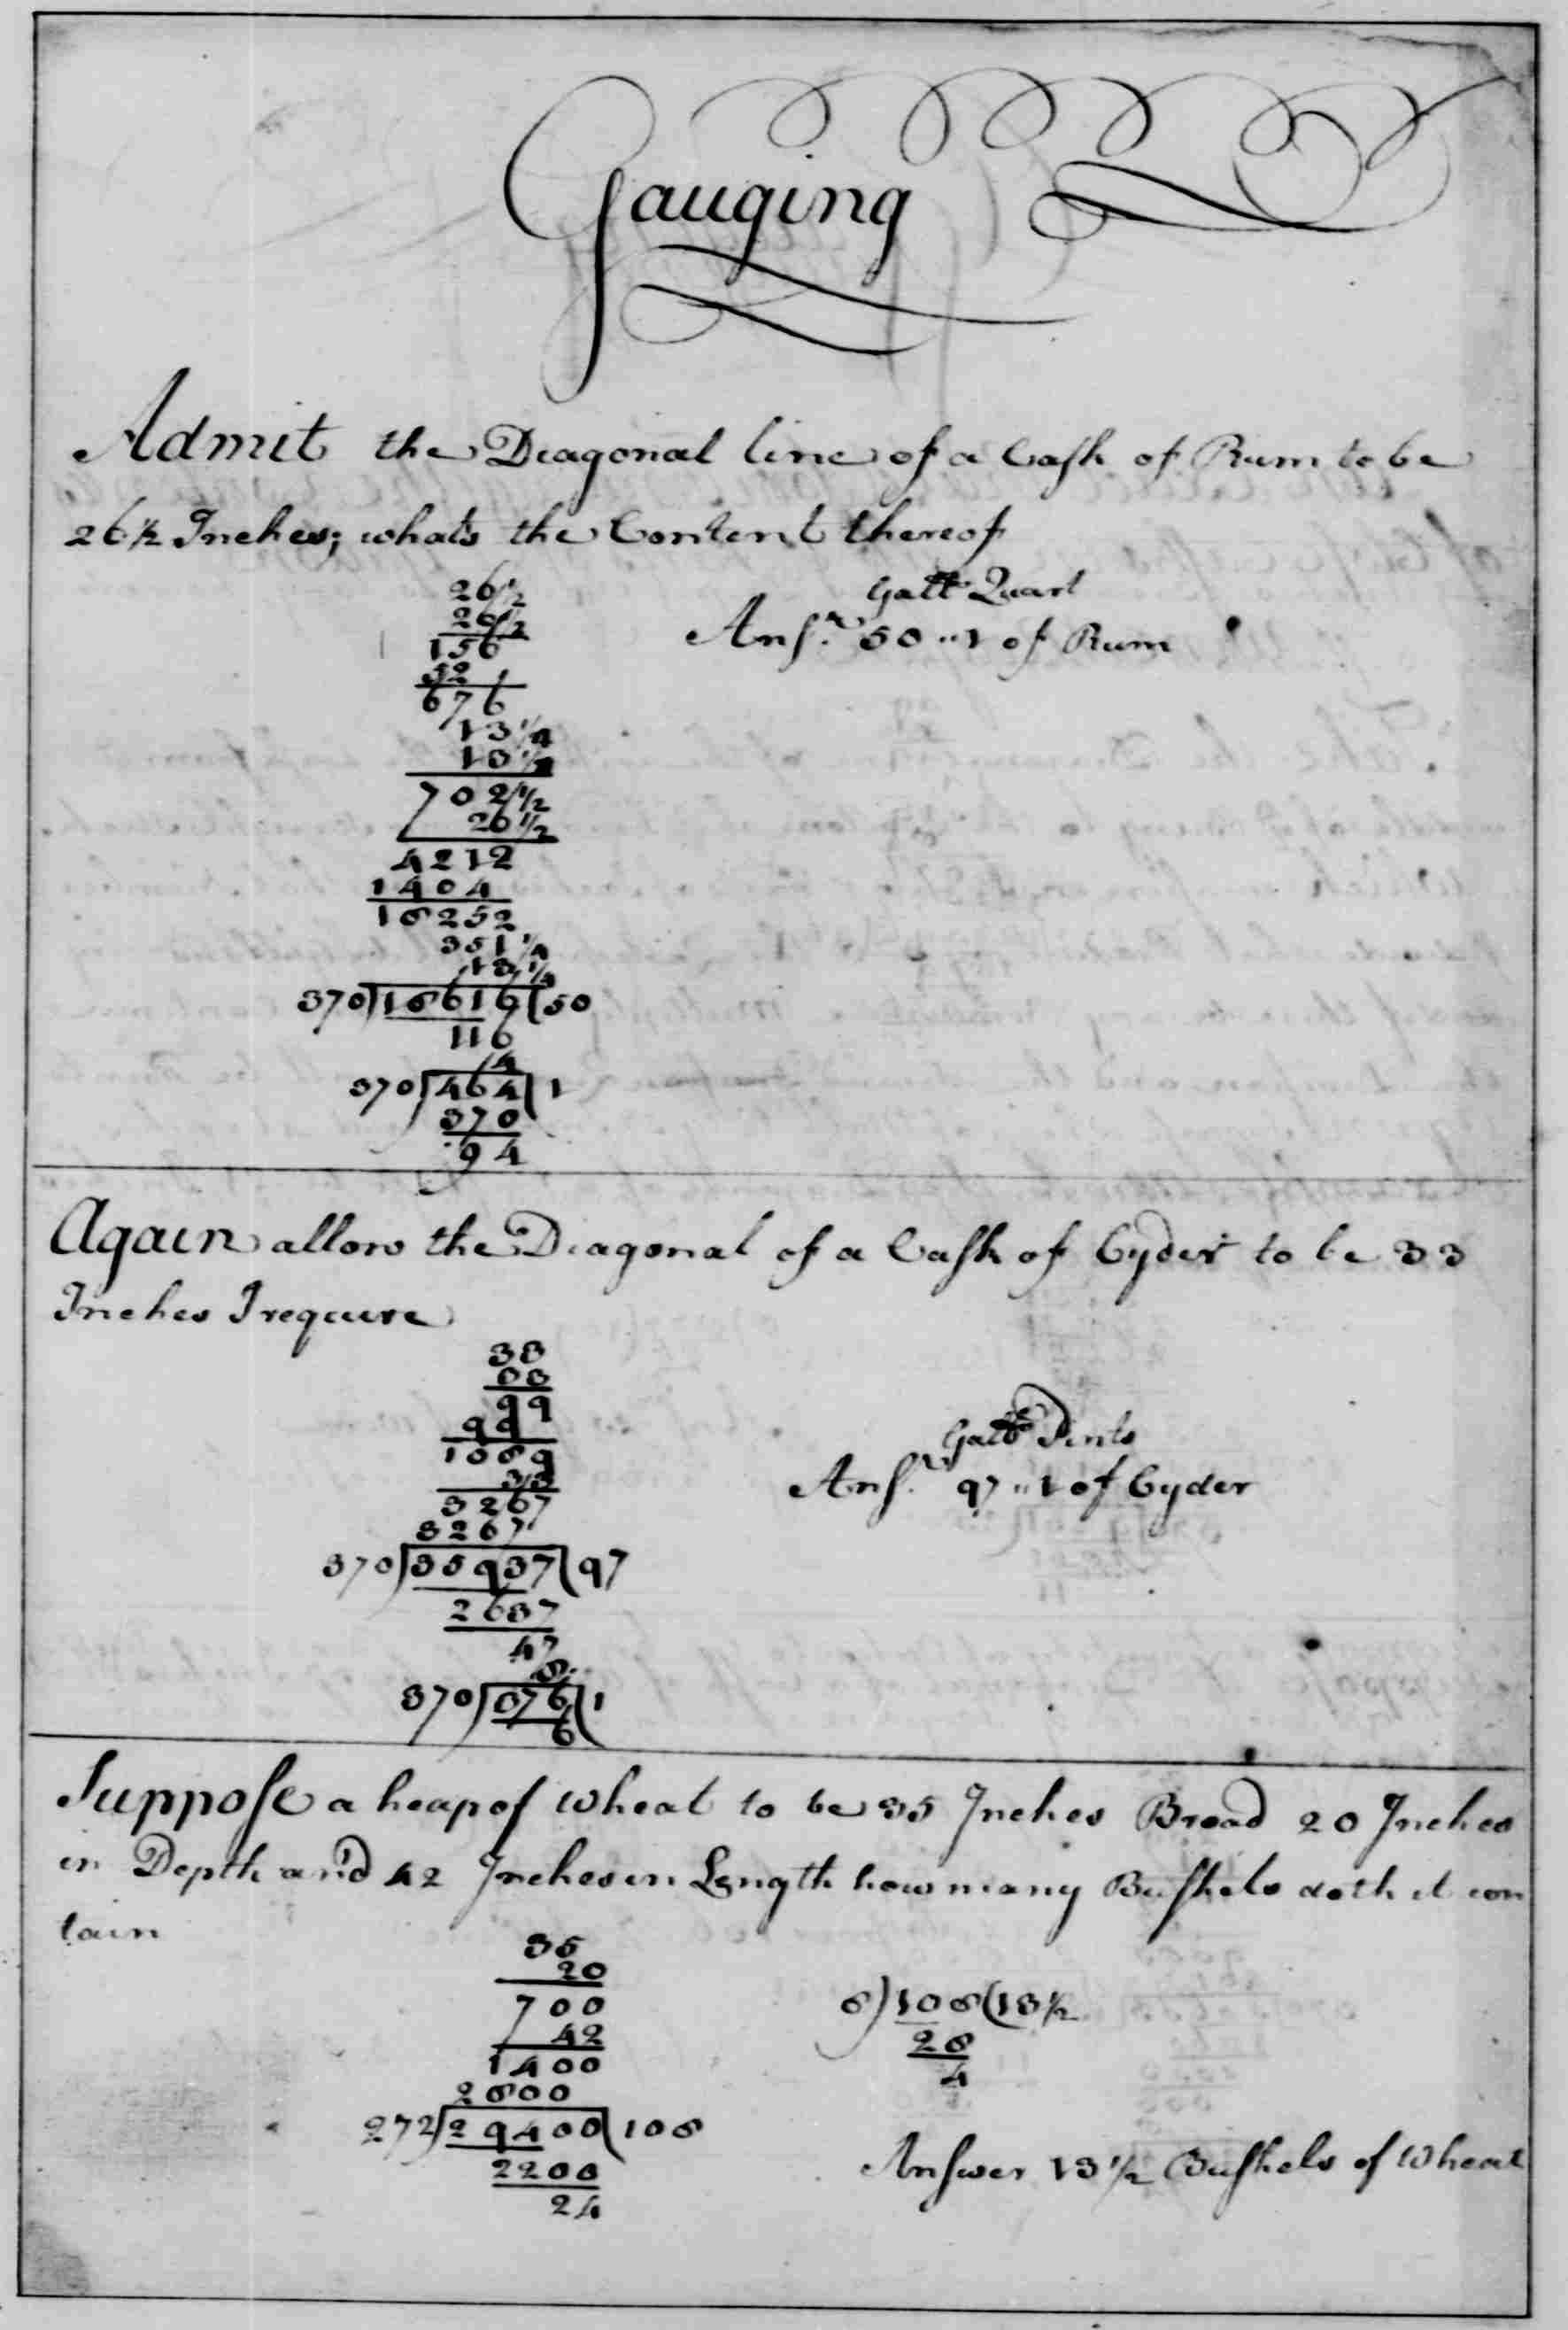 Gauging
Admit the Diagonal line of a Cask of Rum to be
26½ Inches; whats the Content thereof
26½
26½
156
52
676
13¼
13¼
702½
26½
4212
1404
18252
351¼
13¼
370)18616(50
116
4
370)464(1
370
94
Gall.s Quart
Ansr. 50 " 1 of Rum
Again allow the Diagonal of a Cask of Cyder to be 33
Inches I require
33
33
99
99
1089
33
3267
3267
370)35937(97
2637
47
8
370)376(1
6
Gall.s Pints
Ansr. 97 " 1 of Cyder
Suppose a heap of Wheat to be 35 Inches Broad 20 Inches
in Depth and 42 Inches in Length how many Bushels doth it con
tain
35
20
700
42
1400
2800
272)29400(108
2200
24
8)108(13½
28
4
Answer 13½ Bushels of Wheat